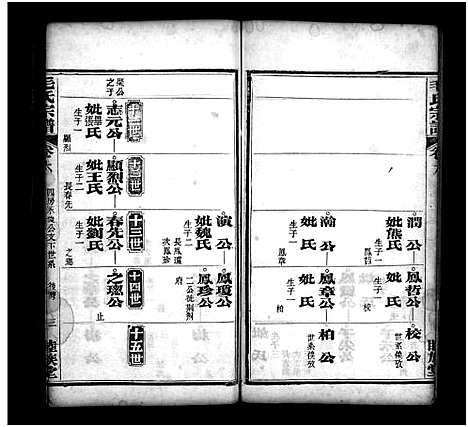 毛氏宗譜
卷
潤公
妣熊氏
生子一
鳳哲
鳳哲公
妣氏
生子一
校
校公
世系後攷
瀚公
妣氏
生子一
鳳章
鳳章公
妣氏
生子一
柏
柏公
世系後攷
演公
妣魏氏
生子二
長鳳瓊
次鳳珍
鳳瓊公
鳳珍公
二公徙荊州
府
十一世
十二世
十三世
十四世
十五世
榮公
之子
志元公
氏
生子一
顯烈
顯烈公
妣王氏
生子二
長春先
春先公
妣劉氏
生子一
之
之公
止
毛氏宗譜
卷
世系
三
睦族堂